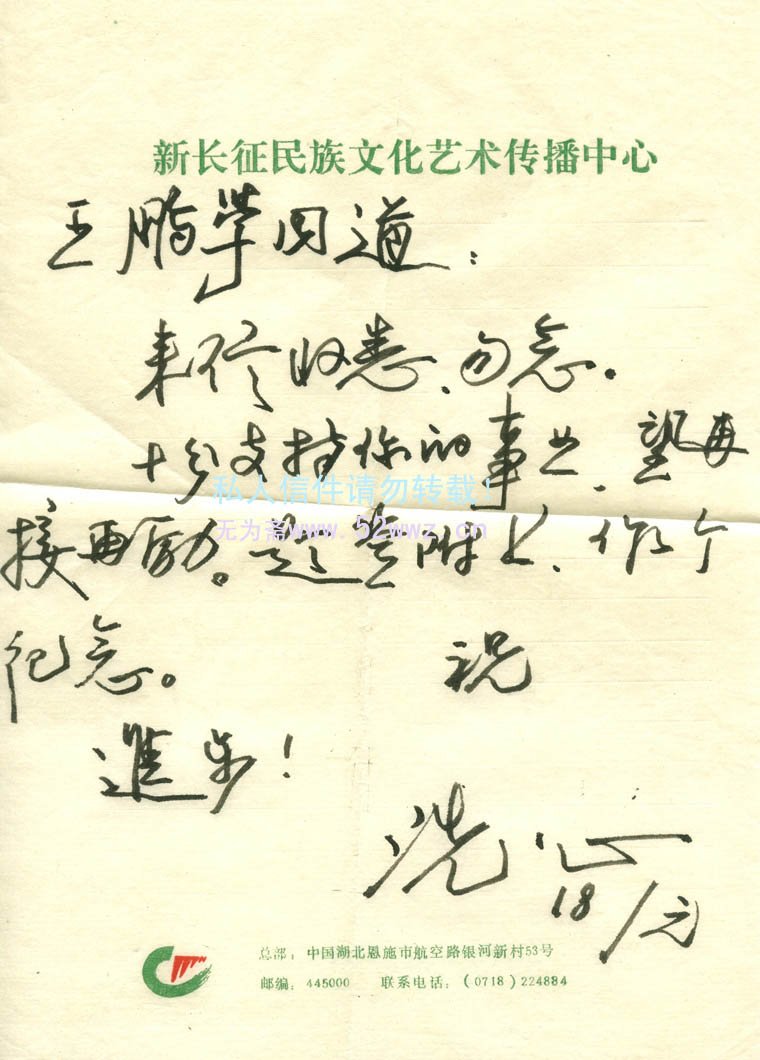 新长征民族文化艺术传播中心
王鹏学同道：
来信收悉、勿念。
十分支持你的事业、望再
私人信件请勿转载！
接再励。题荅附上、作个
无为斋www.52wwz.cn
纪念。 祝
進步！
洗心
18/元
总部：中国湖北恩施市航空路银河新村53号
邮编：445000 联系电话：（0718）224884